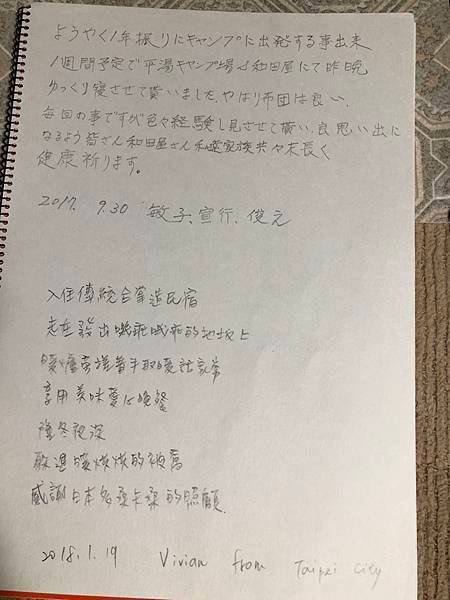 ようやく1年振りにキャンプに出発する事出来
1週間予定で平湯キャンプ場より和田屋にて昨晩
ゆっくり寝させて貰いました、やはり布団は良い、
毎回の事ですが色々経験し見させて貰い、良思い出に
なるよう皆さん和田屋さん私達家族共々末長く
健康祈ります。
2017. 9.30 敏子、宣行、俊元
入住傳統合掌造民宿
走在發出嘰乖嘰乖的地板上
暖爐旁搓著手取暖話家常
享用美味豐富晚餐
隆冬夜深
躲進暖烘烘的被窩
感謝日本多桑卡桑的照顧
2018.1.19 Vivian from Taipei City